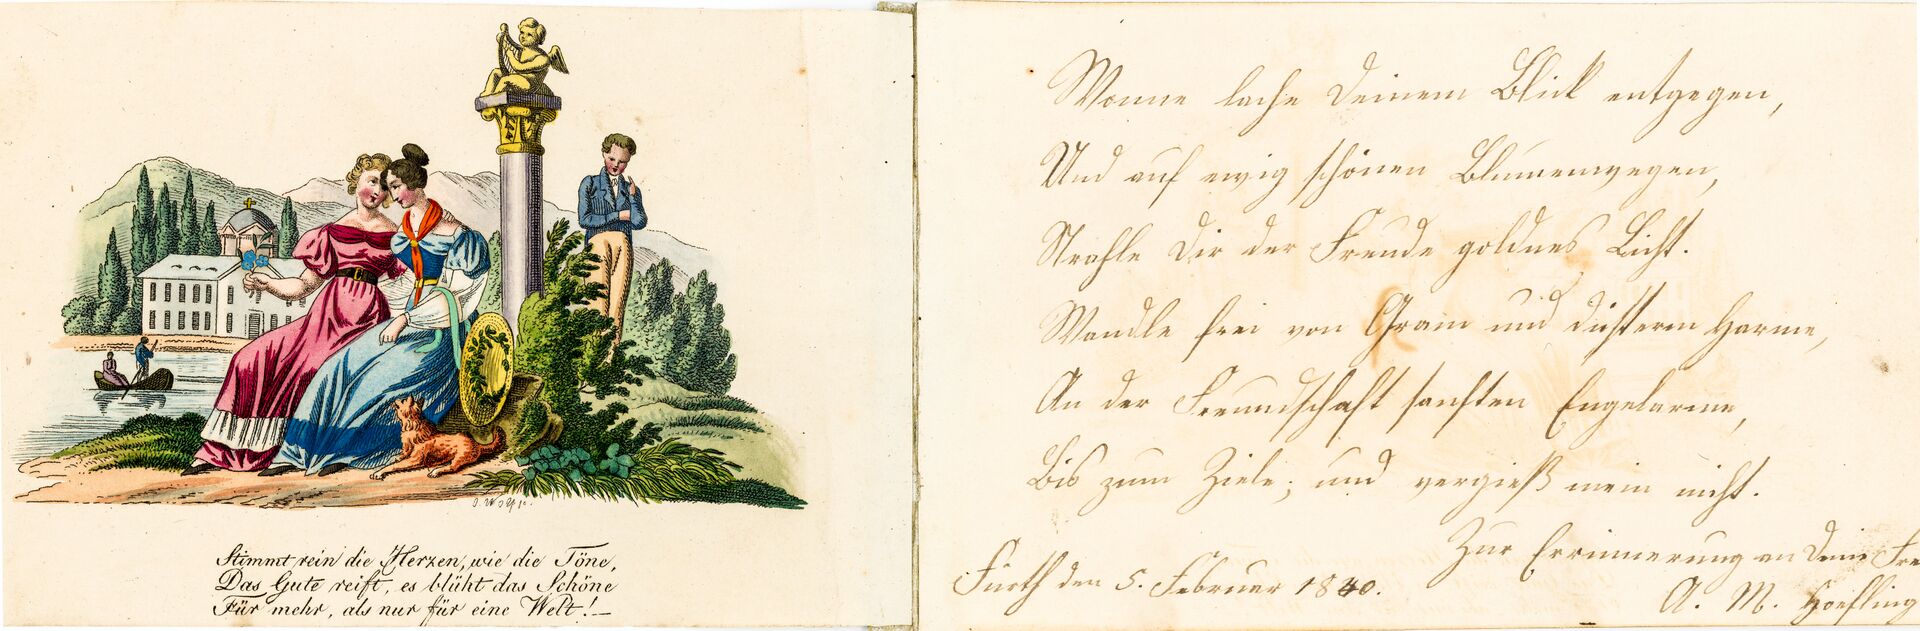 Stimmt rein die Herzen, wie die Töne,
Das Gute reift, es blüht das Schöne
Für mehr, als nur für eine Welt! —
Wonne lache Deinem Blick entgegen,
Und auf ewig schönen Blumenwegen,
Strahle Dir der Freude goldnes Licht.
Wandle frei von Gram und düsterm Harme,
An der Freundschaft sanften Engelarme,
Bis zum Ziele; und vergieß mein nicht.
Zur Errinnerung an Deine Fre
Fürth den 5. Februar 1840.
A. M. Hoefling